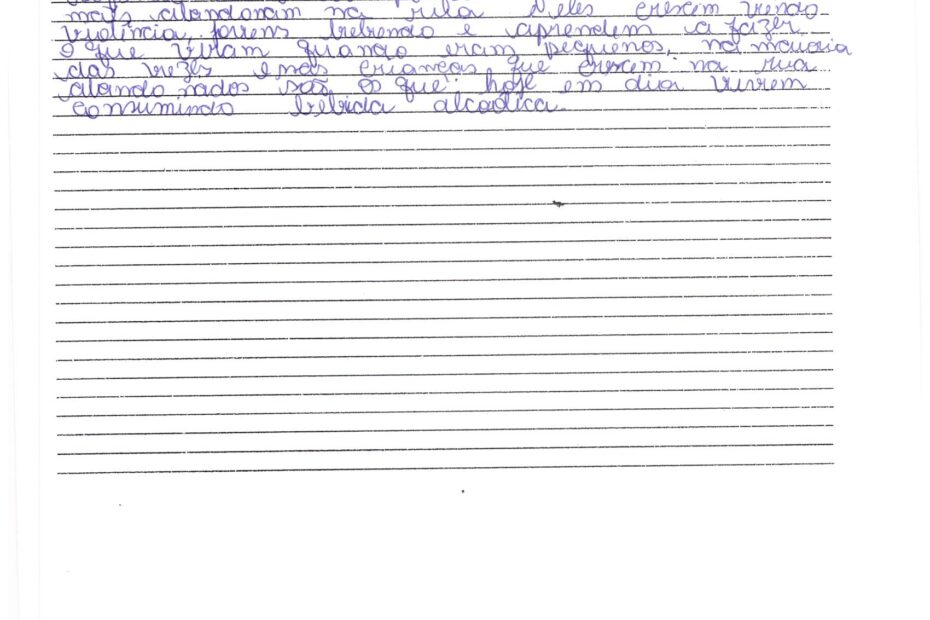 mais abandonam na rua Neles crescem vendo
violência, jovens bebendo e aprendem a fazer
o que viram quando eram pequenos, na maioria
das vezes essas crianças que crescem na rua
abando nados são os que hoje em dia vivem
consumindo bebida alcoólica.